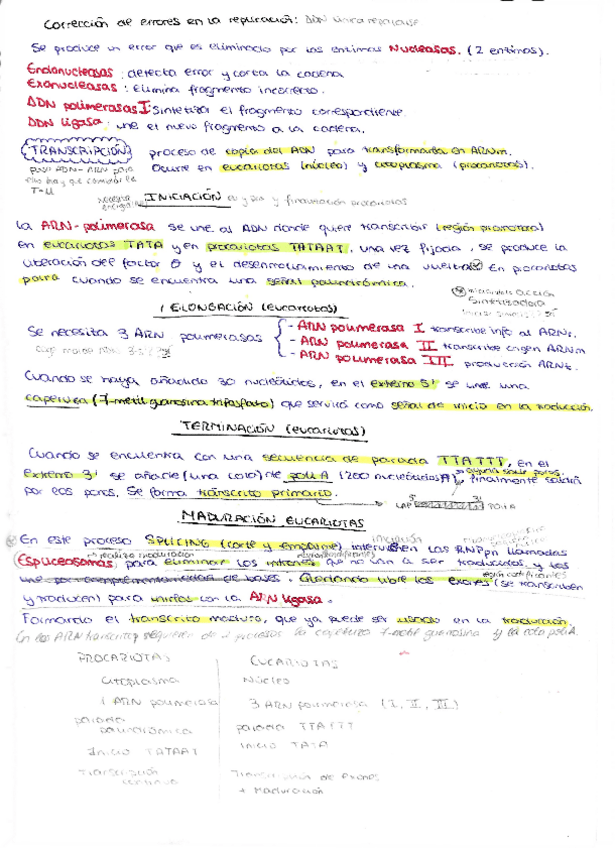 Corrección de errores en la replicación: ADN única
Se produce un error que es eliminado por las enzimas Nucleasas. (2 enzimas).
Endonucleasas: detecta error y corta la cadena
Exonucleasas: Elimina fragmento incorrecto.
ADN polimerasas I: Sintetiza el fragmento correspondiente.
ADN ligasa: une el nuevo fragmento a la cadena.
TRANSCRIPCIÓN proceso de copia del ADN para transformarla en ARNm.
pasa ADN-ARN para Ocurre en eucariotas (núcleo) y citoplasma (procariotas).
ello hay que cambiar la
T=U
Necesita energía INICIACIÓN y finalización procariotas
La ARN-polimerasa se une al ADN donde quiere transcribir (región promotora)
en eucariotas TATA y en procariotas TATAAT, una vez fijada, se produce la
liberación del factor σ y el desenrollamiento de una vuelta. En procariotas
para cuando se encuentra una señal palindrómica.
acción
sintetizadora
ELONGACIÓN (eucariotas)
Se necesita 3 ARN polimerasas
- ARN polimerasa I transcribe info al ARNr.
- ARN polimerasa II transcribe origen ARNm
- ARN polimerasa III producción ARNt.
Cuando se haya añadido 30 nucleótidos, en el extremo 5' se une una
caperuza (7-metil guanosina trifosfato) que servirá como señal de inicio en la traducción.
TERMINACIÓN (eucariotas)
Cuando se encuentra con una secuencia de parada TTATTT, en el
extremo 3' se añade (una cola) de poli A (200 nucleótidos A), finalmente saldrá
por los poros. Se forma transcrito primario.
CAP 5' 3' POLI A
MADURACIÓN EUCARIOTAS
En este proceso SPLICING (corte y empalme) intervienen las RNPpn llamadas
Espliceosomas, para eliminar los intrones que no van a ser traducidos y las
une por complementariedad de bases. Quedando libre los exones (se transcriben
y traducen) para unirlos con la ARN ligasa.
Formando el transcrito maduro, que ya puede ser usado en la traducción.
En los ARN transcrip se requieren de 2 procesos la caperuza 7-metil guanosina y la cola poliA.
PROCARIOTAS EUCARIOTAS
Citoplasma Núcleo
1 ARN polimerasa 3 ARN polimerasa (I, II, III)
parada
palindrómica parada TTATTT
Inicio TATAAT Inicio TATA
Transcripción
continua
Transcripción de Exones
+ Maduración